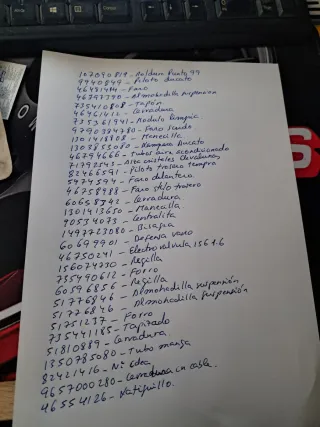 167090819 - Moldura Punto 99
9940849 - Piloto Ducato
46481414 - Faro
46797390 - Almohadilla suspensión
735410808 - Tapón
46461412 - Cerradura
735361941 - Modulo limpia
9790384780 - Faro Scudo
1301418808 - Manecilla
1303853080 - Rampara Ducato
46794666 - Tubos aire acondicionado
71792543 - Alza cristales
82466591 - Piloto trasero Tempra
5974594 - Faro delantero
46758988 - Faro stilo trasero
60658342 - Cerradura.
1301413650 - Manecilla
70534073 - Centralita
1497723080 - Bisagra
60699901 - Defensa
46750241 - Electrovalvula 156 1.6
156074730 - Regilla
735490612 - Forro
60596856 - Regilla
51776846 - Almohadilla suspensión
51776846 - Almohadilla suspensión
51751237 - Forro
735441185 - Tapizado
51810889 - Cerradura.
1350785080 - Tubo manga
82421416 -
9657000280 - Cerradura
46554126 - Natiguillo.